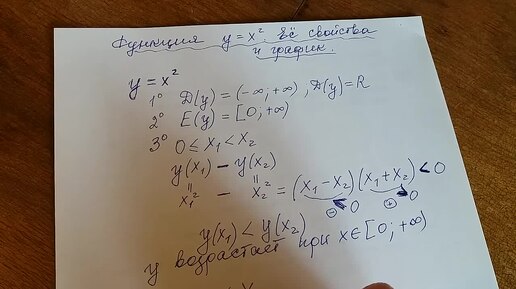 Функция y = x². Её свойства
и график.
y = x²
1° D(y) = (-∞; +∞), D(y) = R
2° E(y) = [0; +∞)
3° 0 ≤ x₁ < x₂
y(x₁) - y(x₂)
|| ||
x₁² - x₂² = (x₁ - x₂)(x₁ + x₂) < 0
⊖ < 0 ⊕ > 0
y(x₁) < y(x₂)
y возрастает при x ∈ [0; +∞)